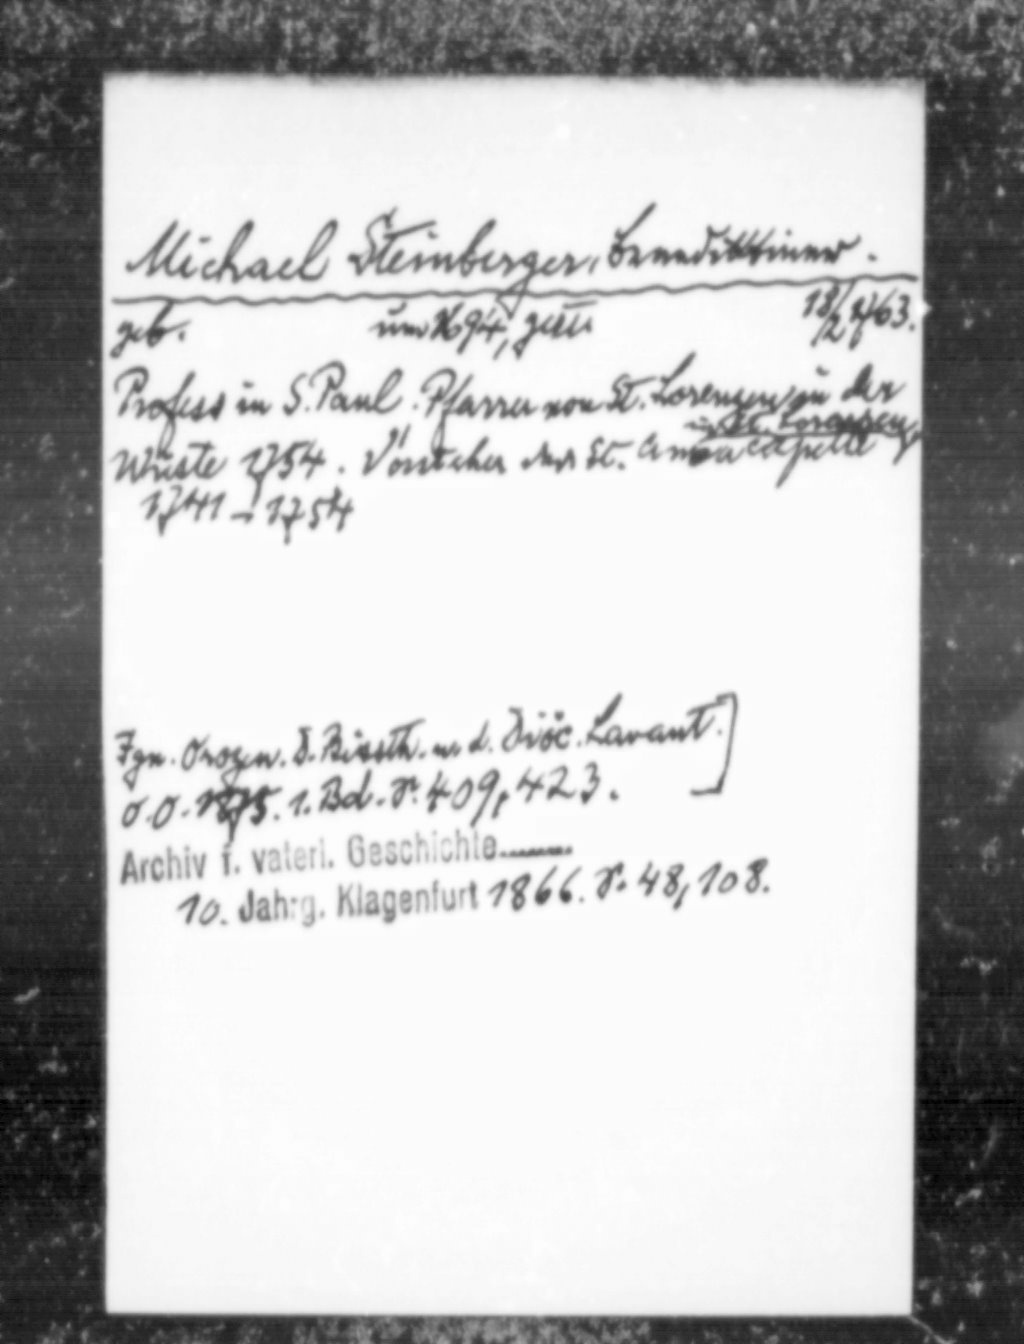 Michael Steinberger, Benediktiner.
geb. um 1694, gest. 18/2 1763.
Profess in S. Paul. Pfarrer von St. Lorenzen in der
in St. Lorenzen,
Wüste 1754. Vorsteher der St. Annacapelle
1741 - 1754
Ign. Orožen. D. Bisth. u. d. Diöc. Lavant.]
O.O. 1875. 1. Bd. S. 409, 423.
Archiv f. vaterl. Geschichte
10. Jahrg. Klagenfurt 1866. S. 48, 108.